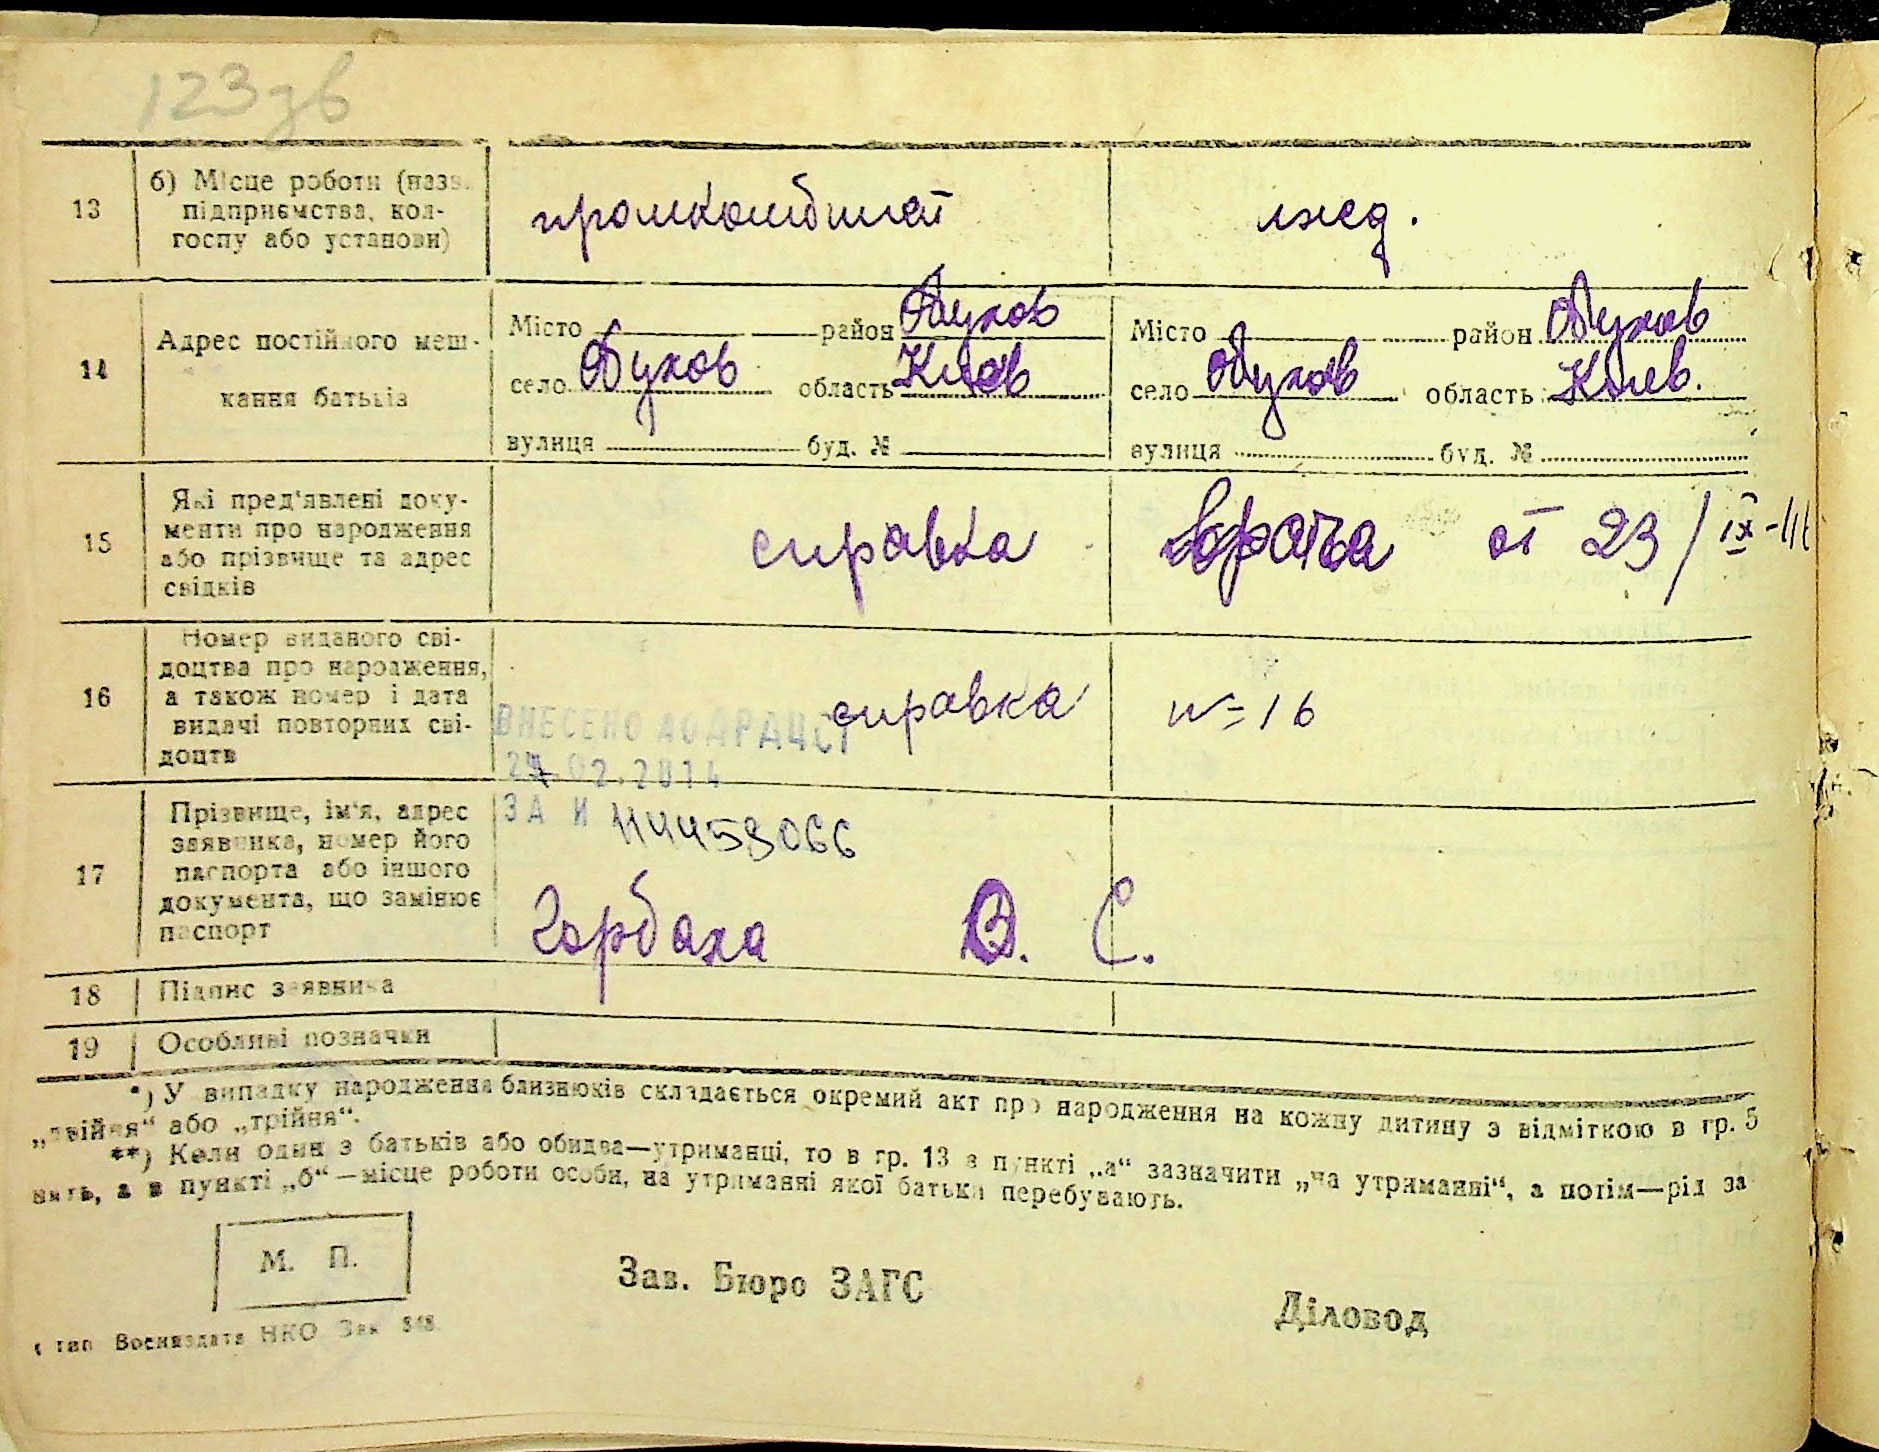 123зв
13 б) Місце роботи (назв. підприємства, кол-госпу або установи) промкомбинат ижед.
14 Адрес постійного меш-кання батьків
Місто район Обухов Місто район Обухов
село Обухов область Киев село Обухов область Киев.
вулиця буд. № вулиця буд. №
15 Які пред'явлені доку-
менти про народження
або прізвище та адрес
свідків
справка врача от 23/IX-44
16 Номер виданого сві-
доцтва про народження,
а також номер і дата
видачі повторних сві-
доцтв
справка № 16
ВНЕСЕНО ДО ДРАЦСГ
02.2014
ЗА № 44459066
17 Прізвище, ім'я, адрес
заявника, номер його
паспорта або іншого
документа, що замінює
паспорт
Горбаха В. С.
18 Підпис заявника
19 Особливі позначки
*) У випадку народження близнюків складається окремий акт про народження на кожну дитину з відміткою в гр. 5
„двійня“ або „трійня“.
**) Коли один з батьків або обидва—утриманці, то в гр. 13 в пункті „а“ зазначити „на утриманні“, а потім—рід за
нять, а в пункті „б“—місце роботи особи, на утриманні якої батьки перебувають.
М. П.
Зав. Бюро ЗАГС
Діловод
тип Воениздата НКО Зак